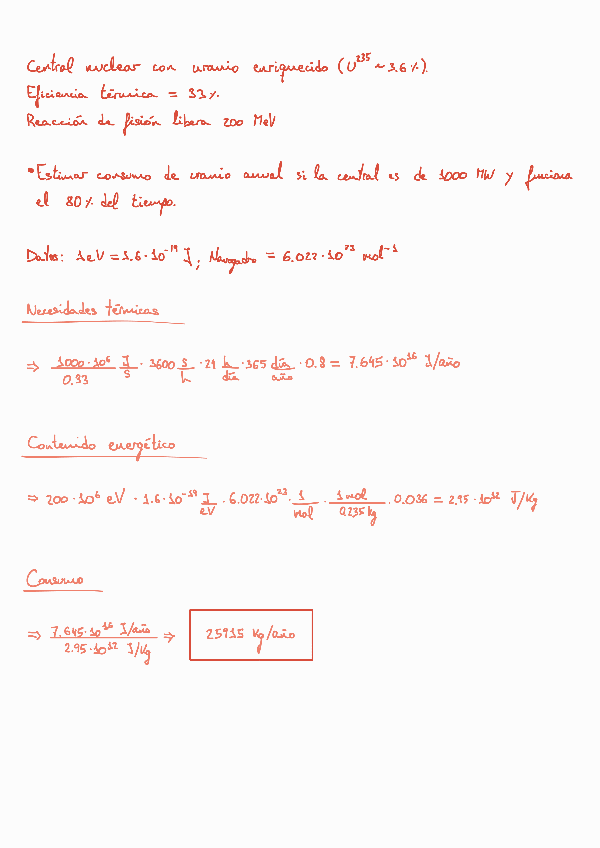 Central nuclear con uranio enriquecido (U²³⁵ ~ 3.6%).
Eficiencia térmica = 33%
Reacción de fisión libera 200 MeV
*Estimar consumo de uranio anual si la central es de 1000 MW y funciona
el 80% del tiempo.
Datos: 1eV = 1.6·10⁻¹⁹ J; Navogadro = 6.022·10²³ mol⁻¹
Necesidades térmicas
⇒ 1000·10⁶/0.33 J/s · 3600 s/h · 24 h/día · 365 día/año · 0.8 = 7.645·10¹⁶ J/año
Contenido energético
⇒ 200·10⁶ eV · 1.6·10⁻¹⁹ J/eV · 6.022·10²³ · 1/mol · 1 mol/0.235 kg · 0.036 = 2.95·10¹² J/Kg
Consumo
⇒ 7.645·10¹⁶ J/año / 2.95·10¹² J/Kg ⇒ 25915 Kg/año